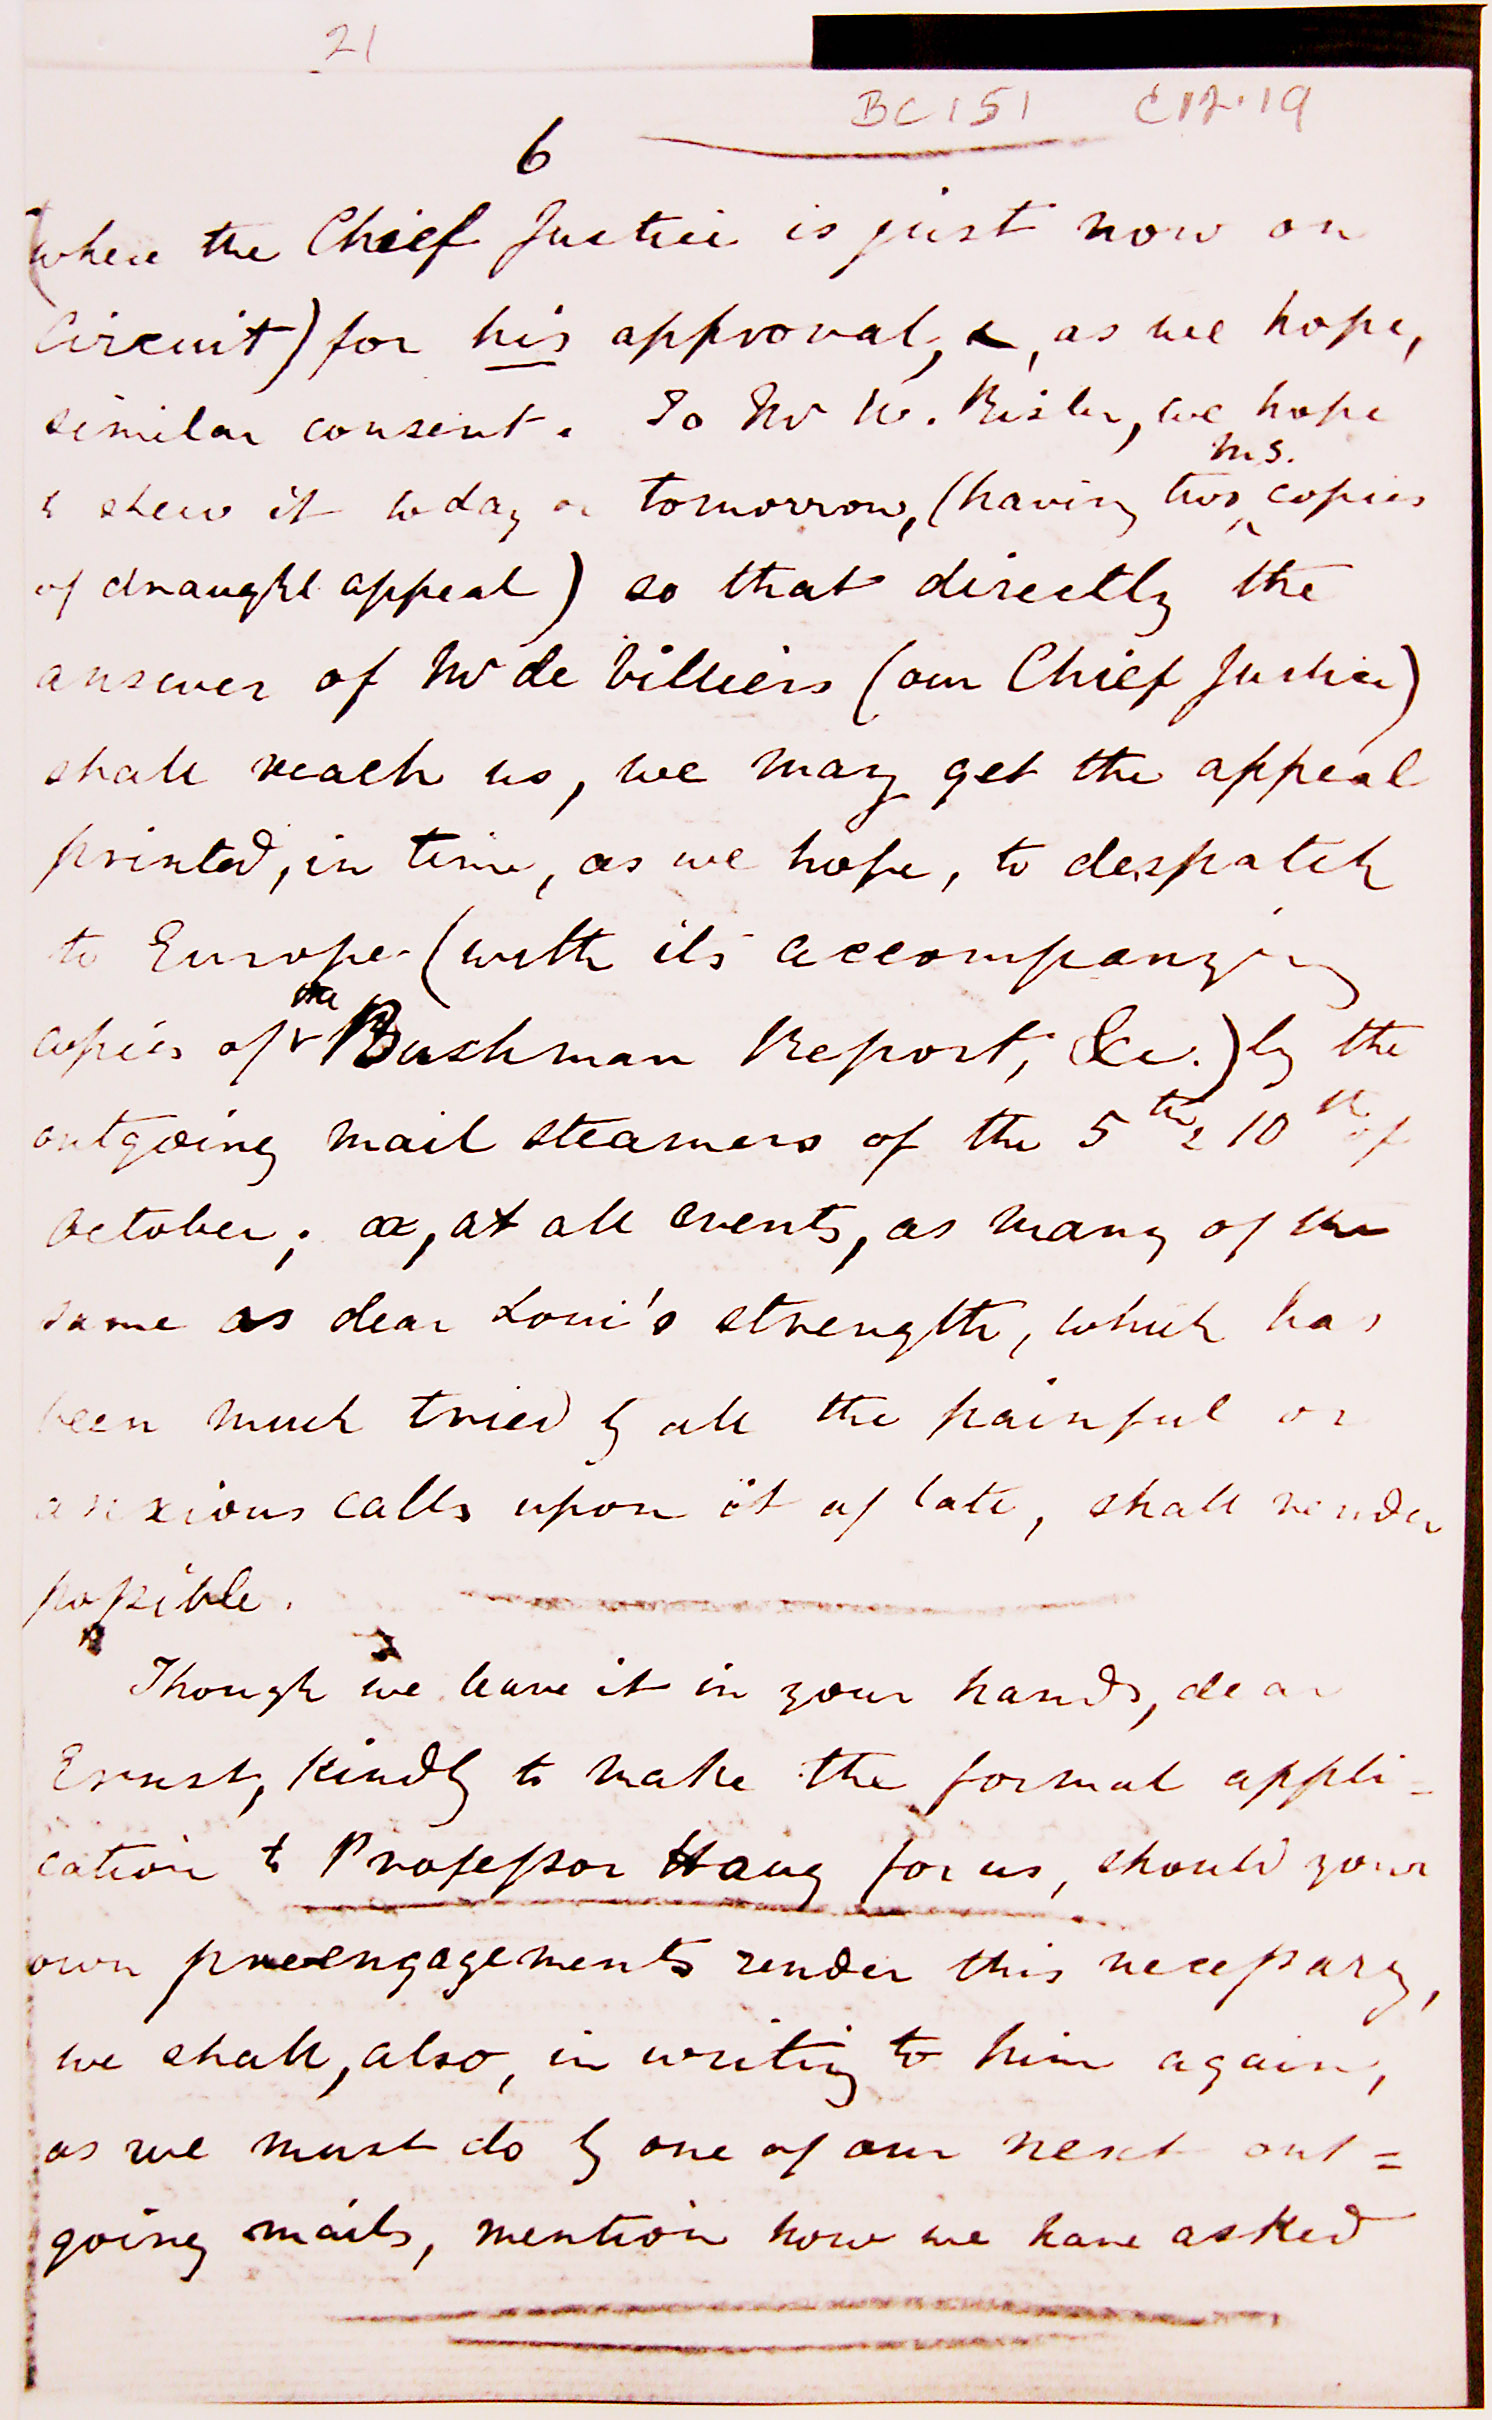 21
BC 151 C12.19
6
(where the Chief Justice is just now on
Circuit) for his approval, &, as we hope,
similar consent. To Mr W. Bisler, we hope
to shew it today or tomorrow, (having two ms. copies
of draught appeal) so that directly the
answer of Mr de Villiers (our Chief Justice)
shall reach us, we may get the appeal
printed, in time, as we hope, to despatch
to Europe (with its accompanying
copies of the Bushman Report, &c.) by the
outgoing mail steamers of the 5th & 10th of
October; or, at all events, as many of the
same as dear Loui's strength, which has
been much tried by all the painful or
anxious calls upon it of late, shall render
possible.
Though we leave it in your hands, dear
Ernst, kindly to make the formal appli=
cation to Professor Haug for us, should your
own preengagements render this necessary,
we shall, also, in writing to him again,
as we must do by one of our next out=
going mails, mention how we have asked